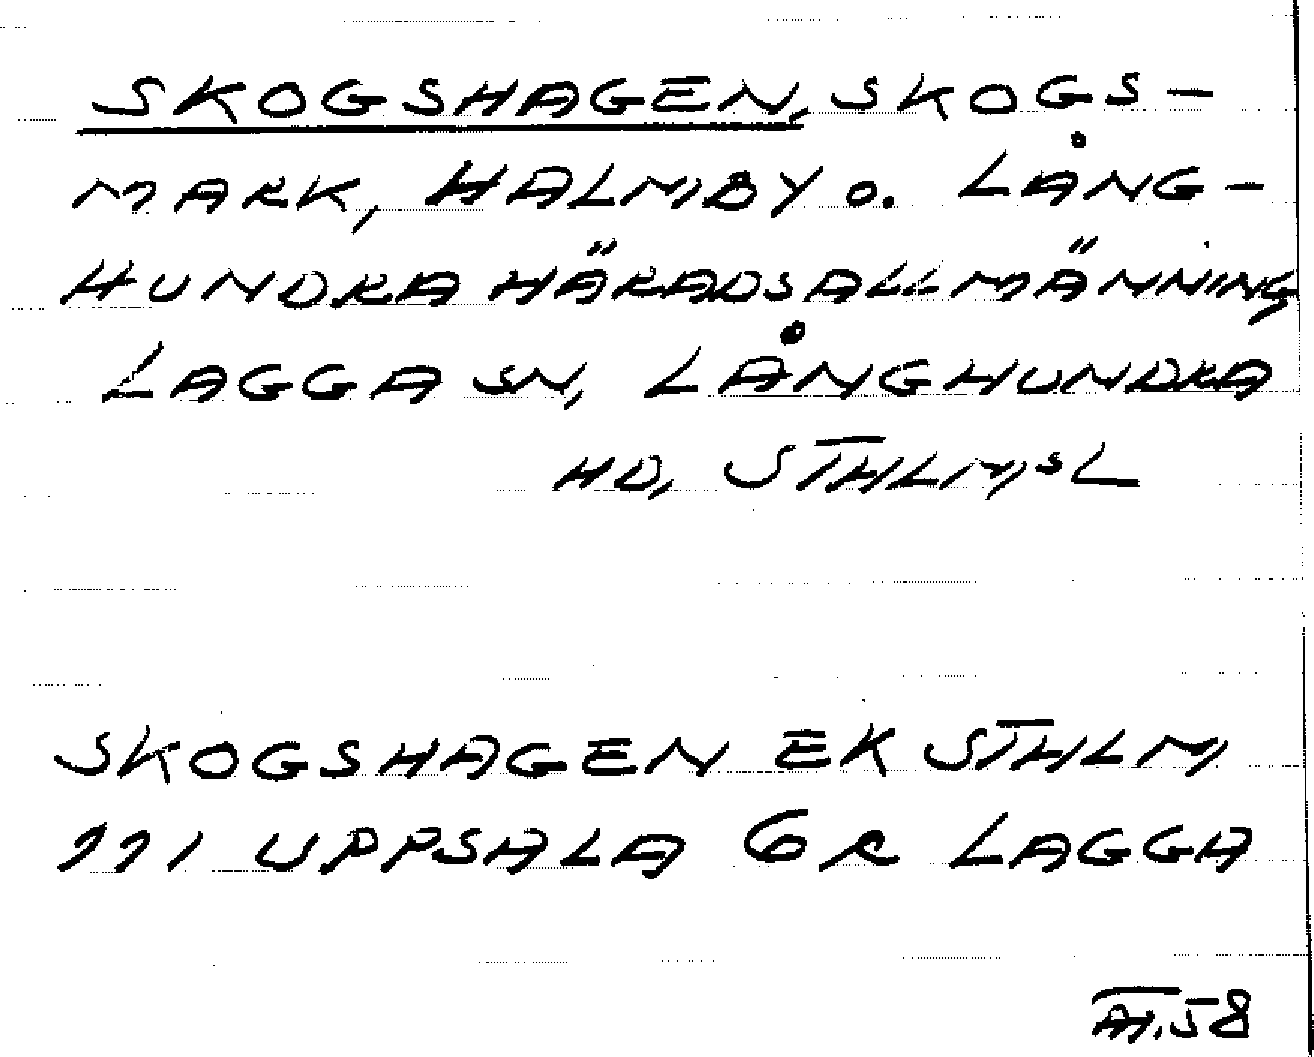 SKOGSHAGEN, SKOGS-
MARK, HALMBY o. LÅNG-
HUNDRA HÄRADSALLMÄNNING
LAGGA SN, LÅNGHUNDRA
HD, STHLMSL
SKOGSHAGEN EK STHLM
111 UPPSALA 6 R LAGGA
58